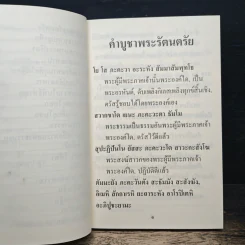 คำบูชาพระรัตนตรัย
โย โส ภะคะวา อะระหัง สัมมาสัมพุทโธ
พระผู้มีพระภาคเจ้านั้นพระองค์ใด, เป็น
พระอรหันต์, ดับเพลิงกิเลสเพลิงทุกข์สิ้นเชิง,
ตรัสรู้ชอบได้โดยพระองค์เอง
สวากขาโต เยนะ ภะคะวะตา ธัมโม
พระธรรมเป็นธรรมอันพระผู้มีพระภาคเจ้า
พระองค์ใด, ตรัสไว้ดีแล้ว
สุปะฏิปันโน ยัสสะ ภะคะวะโต สาวะกะสังโฆ
พระสงฆ์สาวกของพระผู้มีพระภาคเจ้า
พระองค์ใด, ปฏิบัติดีแล้ว
ตัมมะยัง ภะคะวันตัง สะธัมมัง สะสังฆัง,
อิเมหิ สักกาเรหิ ยะถาระหัง อาโรปิเตหิ
อะภิปูชะยามะ